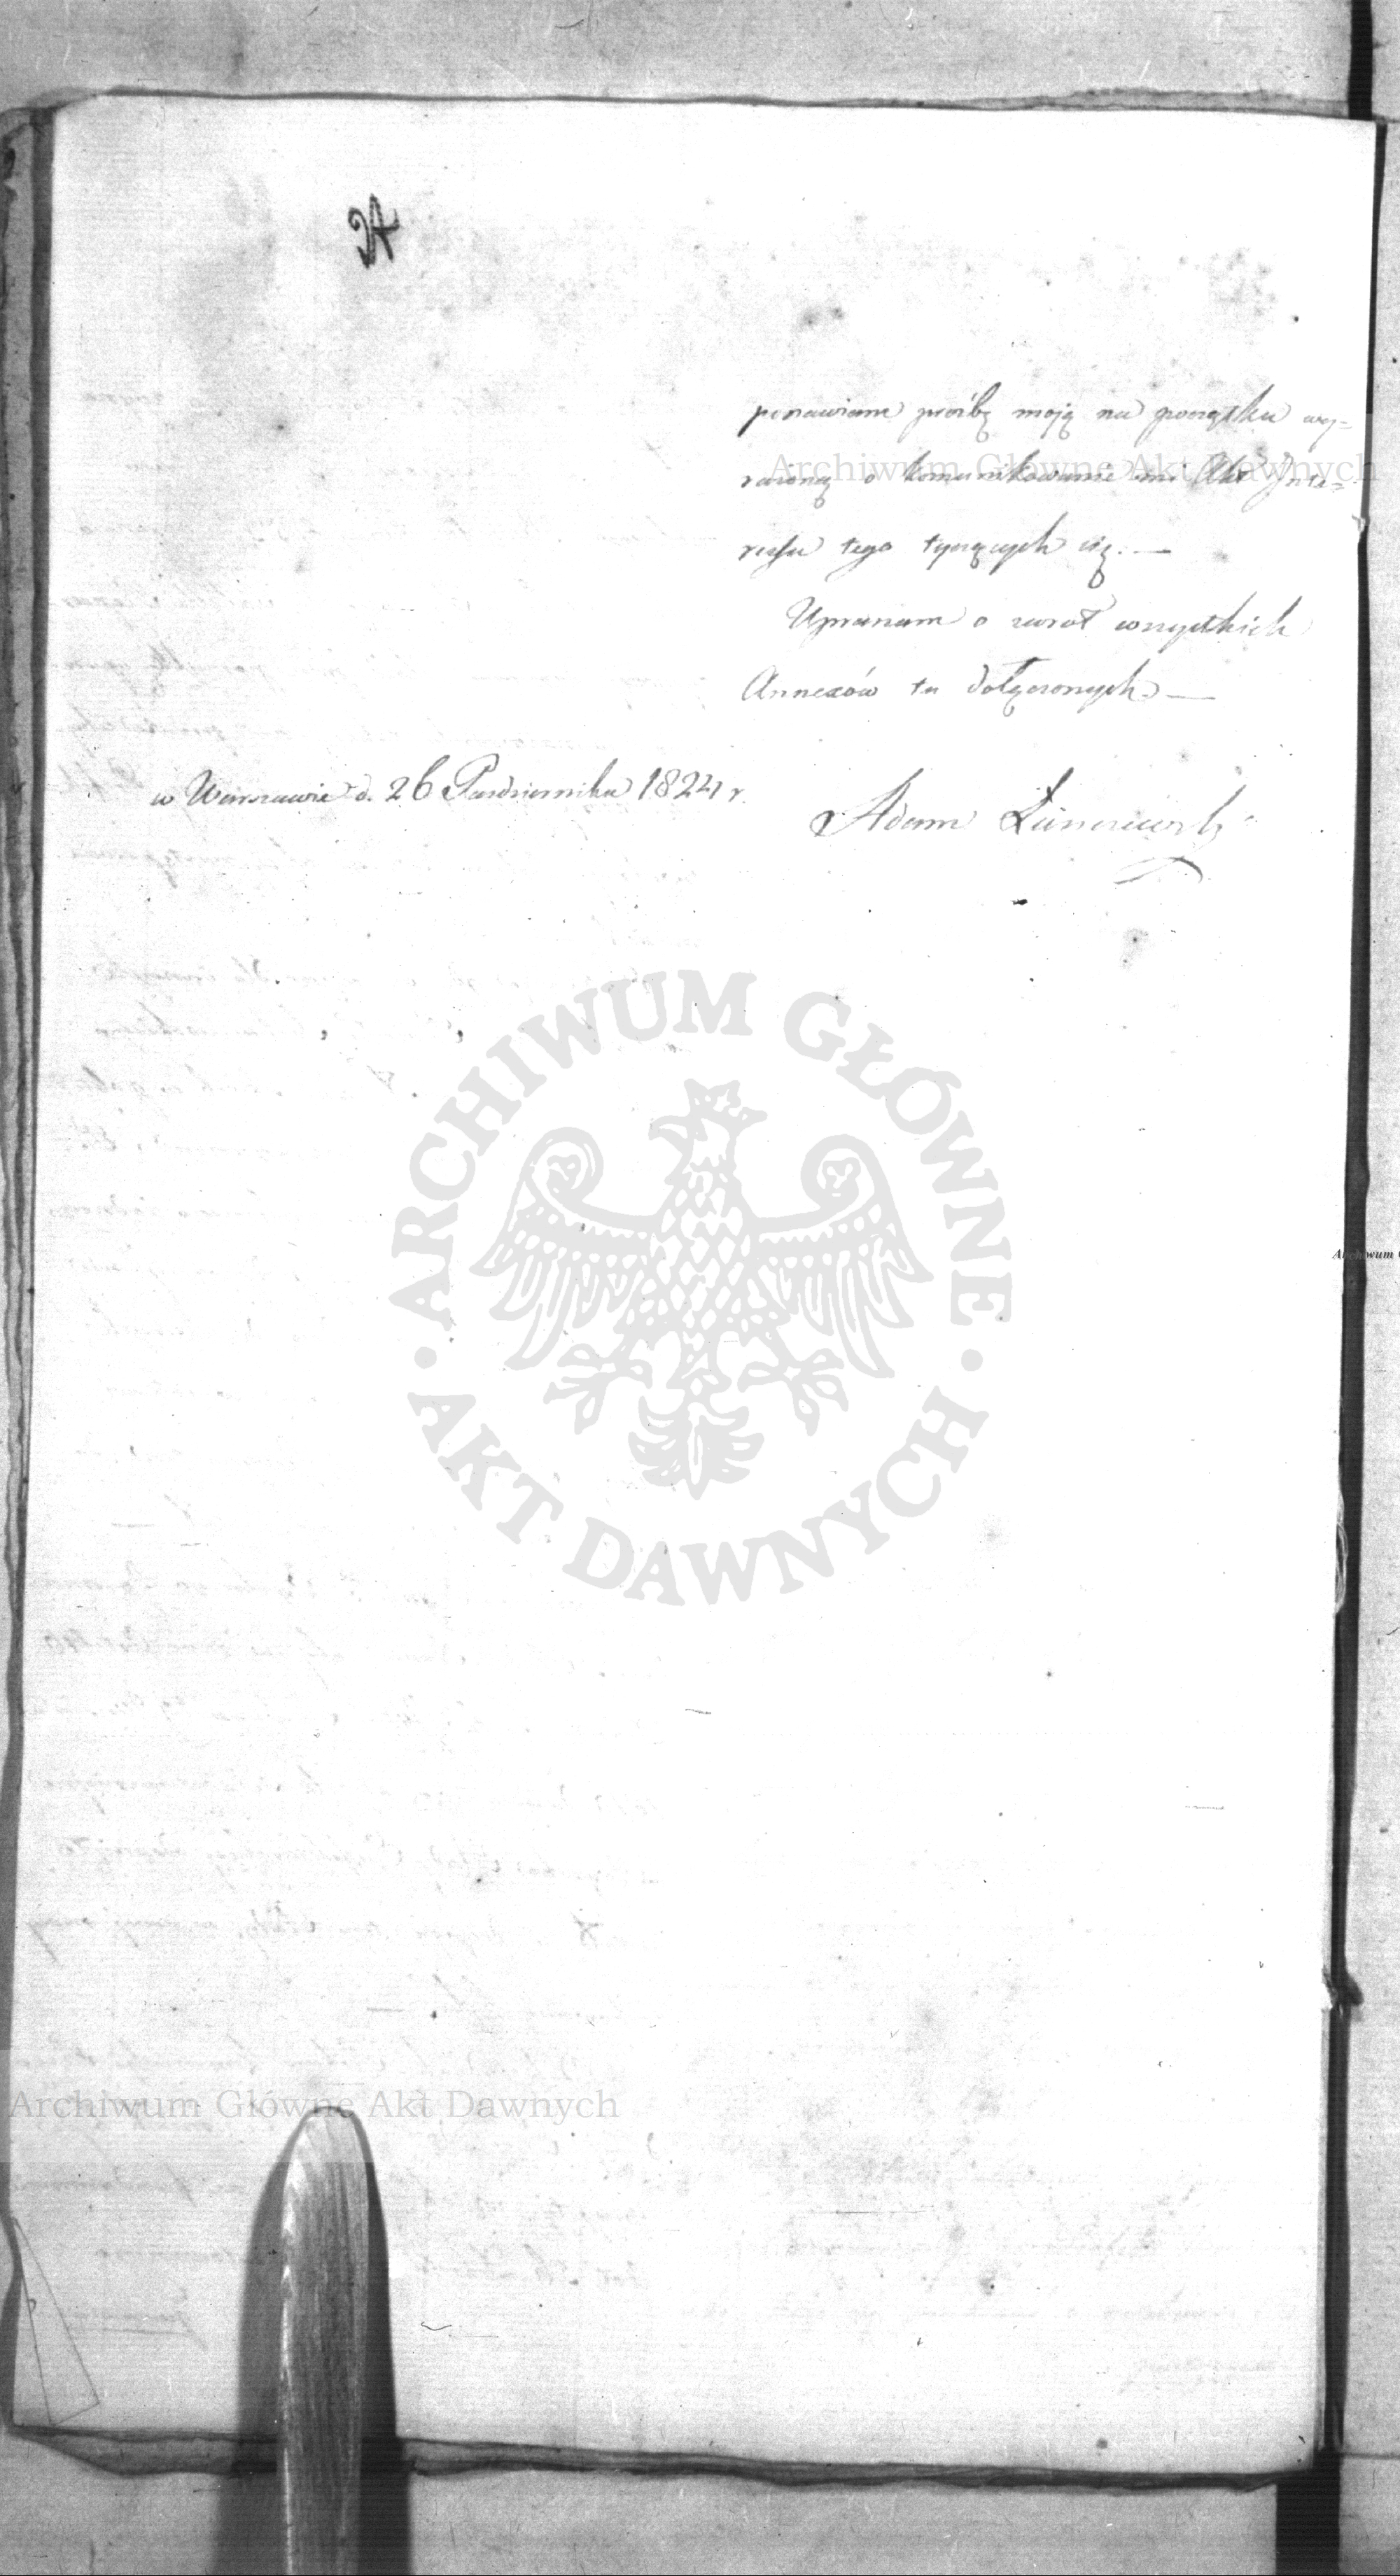 24
ponawiam prośbę moję na początku wy=
rażoną o kommunikowanie mi Akt Inte=
ressu tego tyczących się. —
Upraszam o zwrot wszystkich
Annexów tu dołączonych. —
w Warszawie d. 26 Października 1824 r.
Adam
Archiwum Główne Akt Dawnych
ARCHIWUM GŁÓWNE
AKT DAWNYCH
Archiwum
Archiwum Główne Akt Dawnych